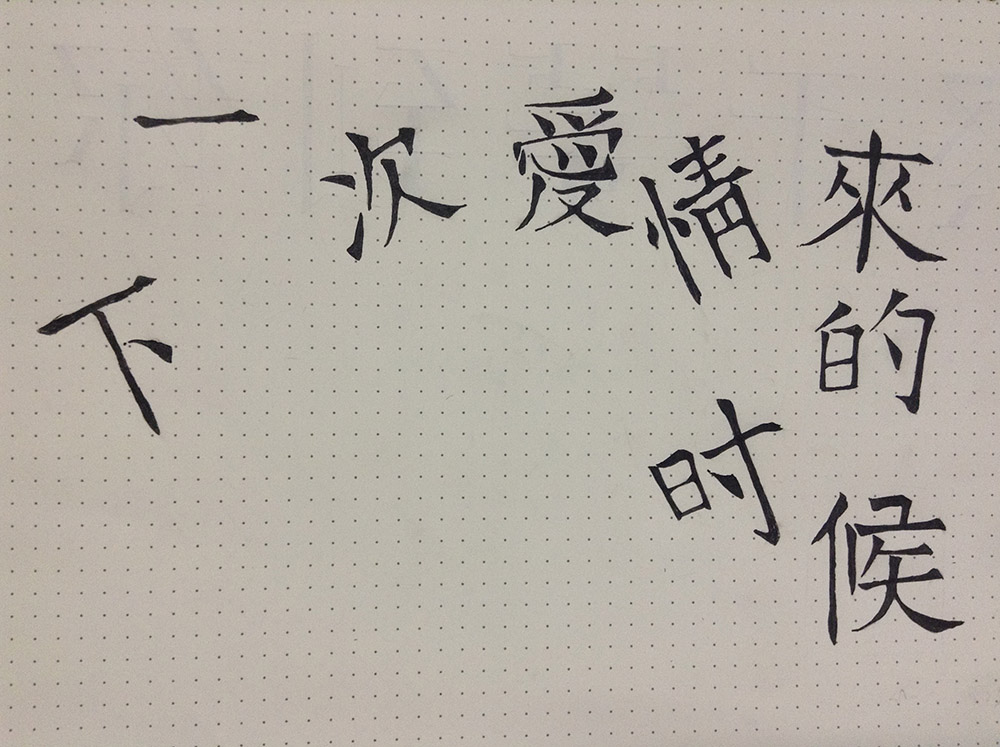 下一次愛情來的时候